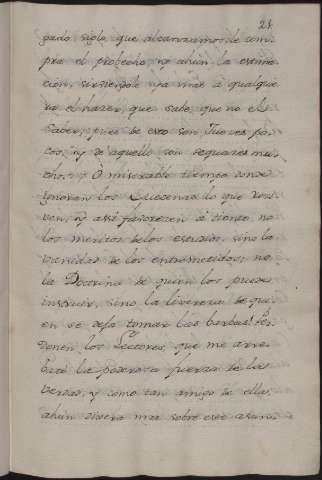 21.
pado siglo que alcanzamos, de com-
pra el probecho, y ahun la estima-
cion, sirviendole ya mas a qualque-
ra el hazer, que sabe, que no el
saber, pues de esto son Jueces po-
cos, y de aquello son sequazes mu-
chos. O miserable tiempo donde
ignoran los Mecenas lo que
ven, y assi favorecen á tiento, no
los meritos de los estudios, sino la
vanidad de los entremetidos; no
la Doctrina de quien los puede
instruir, sino la liverez de qui-
en se deja tomar las barbas. Per-
donen los Lectores, que me arre-
bató la poderosa fuerza de la
verdad, y como tan amigo de ella,
ahun dixera mas sobre este asun-